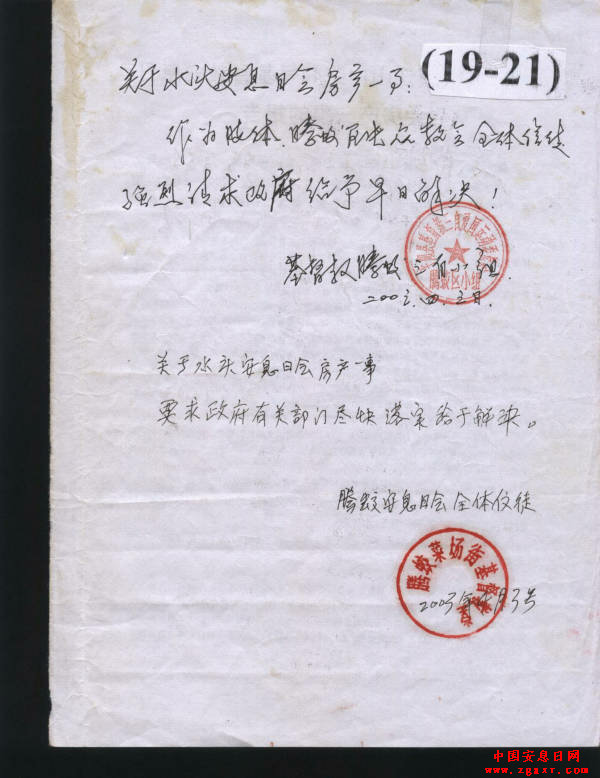 (19-21)
关于水头安息日会房产一事:
作为肢体,腾蛟官出众教会全体信徒
强烈请求政府给予早日解决!
基督教腾蛟三自小组
腾蛟区小组
2003.四.3日.
关于水头安息日会房产一事
要求政府有关部门尽快落实给于解决。
腾蛟安息日会全体信徒
腾蛟菜场街基督教
2003年4月3号
中国安息日网
www.zgaxr.com